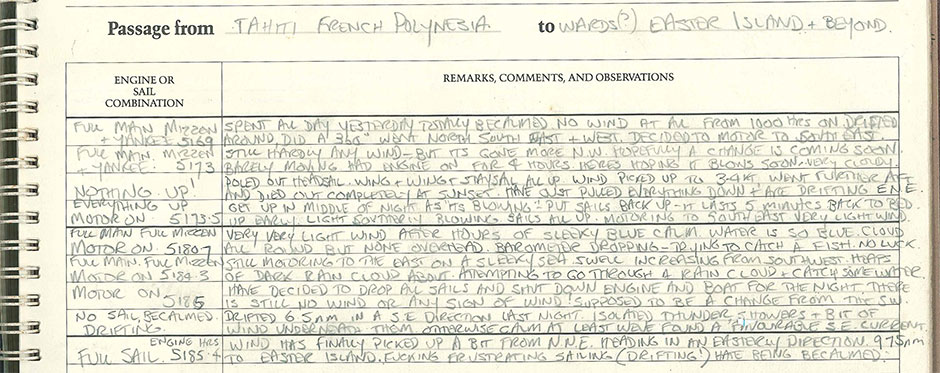 Passage from TAHITI FRENCH POLYNESIA to WARDS(?) EASTER ISLAND + BEYOND.
ENGINE OR SAIL COMBINATION
REMARKS, COMMENTS, AND OBSERVATIONS
FULL MAIN MIZZEN SPENT ALL DAY YESTERDAY TOTALLY BECALMED NO WIND AT ALL FROM 1000 HRS ON DRIFTED
+ YANKEE 5169 AROUND, DID A 360° WENT NORTH SOUTH EAST + WEST. DECIDED TO MOTOR TO SOUTH EAST
FULL MAIN. MIZZEN STILL HARDLY ANY WIND - BUT ITS GONE MORE N.W. HOPEFULLY A CHANGE IS COMING SOON.
+ YANKEE. 5173 BARELY MOVING HAD ENGINE ON FOR 4 HOURS WERE HOPING IT BLOWS SOON - VERY CLOUDY.
POLED OUT HEADSAIL. WING + WING + STAYSAIL ALL UP WIND PICKED UP TO 3-4KT. WENT FURTHER AFT
NOTHING UP! AND DIED OUT COMPLETELY AT SUNSET. HAVE JUST PULLED EVERYTHING DOWN + ARE DRIFTING ENE.
EVERYTHING UP GET UP IN MIDDLE OF NIGHT AS ITS BLOWING! PUT SAILS BACK UP - IT LASTS 5 MINUTES BACK TO BED
MOTOR ON 5173.5 UP EARLY LIGHT SOUTHERLY BLOWING SAILS ALL UP. MOTORING TO SOUTH EAST VERY LIGHT WIND
FULL MAIN FULL MIZZEN VERY VERY LIGHT WIND AFTER HOURS OF SLEEKY BLUE CALM WATER IS SO BLUE. CLOUD
MOTOR ON. 5180.7 ALL ROUND BUT NONE OVERHEAD. BAROMETER DROPPING - TRYING TO CATCH A FISH. NO LUCK.
FULL MAIN. FULL MIZZEN STILL MOTORING TO THE EAST ON A SLEEKY SEA SWELL INCREASING FROM SOUTHWEST. HEAPS
MOTOR ON 5184.3 OF DARK RAIN CLOUD ABOUT. ATTEMPTING TO GO THROUGH A RAIN CLOUD + CATCH SOME WATER
MOTOR ON HAVE DECIDED TO DROP ALL SAILS AND SHUT DOWN ENGINE AND BOAT FOR THE NIGHT, THERE
5185 IS STILL NO WIND OR ANY SIGN OF WIND! SUPPOSED TO BE A CHANGE FROM THE SW.
NO SAIL, BECALMED. DRIFTED 6.5nm IN A S.E DIRECTION LAST NIGHT. ISOLATED THUNDER SHOWERS + BIT OF
DRIFTING. WIND UNDERNEATH THEM OTHERWISE CALM AT LEAST WEVE FOUND A FAVOURABLE S.E. CURRENT.
ENGINE HRS WIND HAS FINALLY PICKED UP A BIT FROM N.N.E. HEADING IN AN EASTERLY DIRECTION. 975nm
FULL SAIL. 5185.4 TO EASTER ISLAND. FUCKING FRUSTRATING SAILING (DRIFTING!) HATE BEING BECALMED!